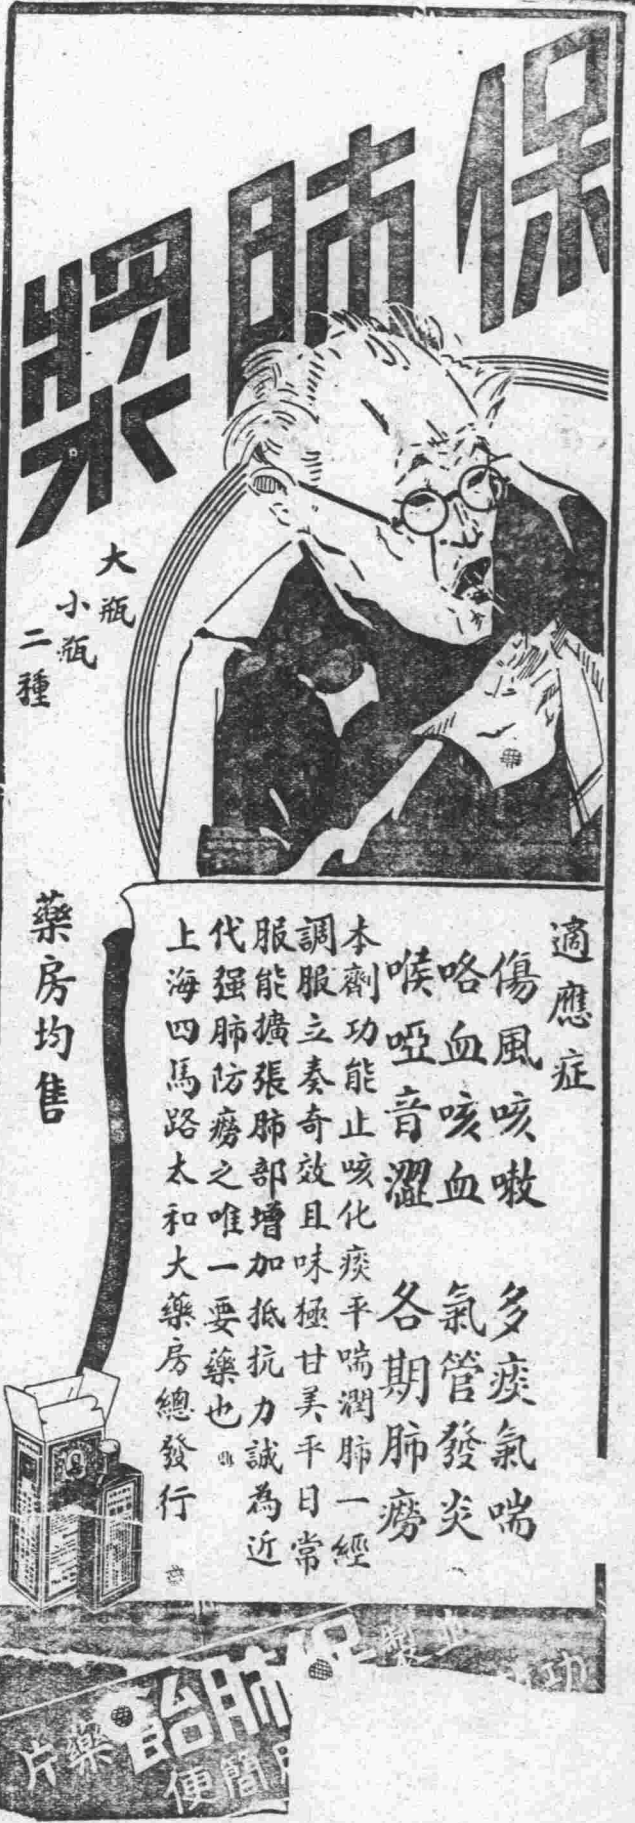 保肺漿
大瓶
小瓶
二種
藥房均售
適應症
傷風咳嗽 多痰氣喘
咯血咳血 氣管發炎
喉啞音澀 各期肺癆
本劑功能止咳化痰平喘潤肺一經
調服立奏奇效且味極甘美平日常
服能擴張肺部增加抵抗力誠為近
代强肺防癆之唯一要藥也
上海四馬路太和大藥房總發行
保肺飴
藥片
簡便